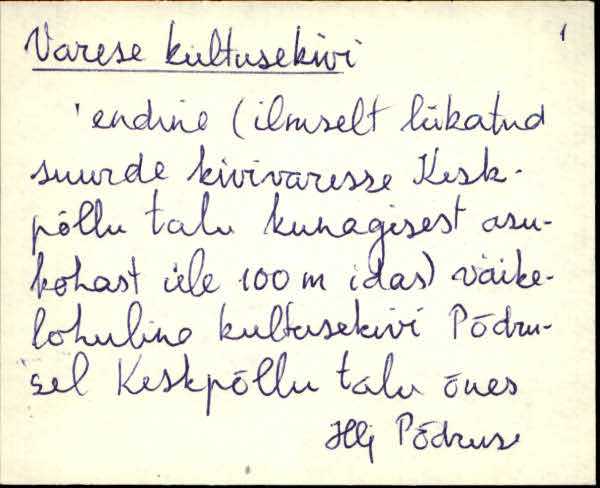 1
Varese kultusekivi
'endine (ilmselt lükatud
suurde kivivaresse Kesk-
põllu talu kunagisest asu-
kohast üle 100 m idas) väike-
lohuline kultusekivi Põdru-
sel Keskpõllu talu õues
Hlj Põdruse